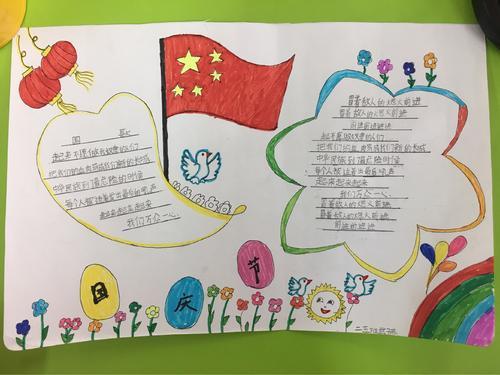 国 歌
起来不愿做奴隶的人们
把我们的血肉筑成我们新的长城
中华民族到了最危险的时候
每个人被迫着发出最后的吼声
起来起来起来
我们万众一心
冒着敌人的炮火前进
冒着敌人的炮火前进
前进前进进
起来不愿做奴隶的人们
把我们的血肉筑成我们新的长城
中华民族到了最危险时候
每个人被迫着发出最后吼声
起来起来起来
我们万众一心
冒着敌人的炮火前进
冒着敌人的炮火前进
前进前进进
国 庆 节